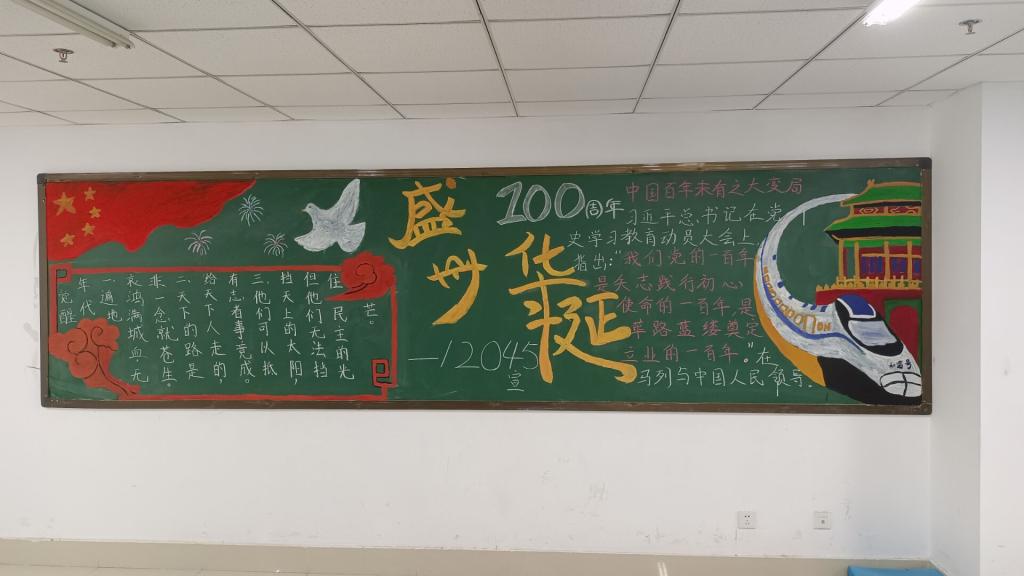 觉醒
年代
一、遍地
哀鸿满城血无
非一念就苍生。
二、天下的路是
给天下人走的,
有志者事竟成。
三、他们可以抵
挡天上的太阳,
但他们无法挡
住民主的光
芒。
盛世
华延
—12045
宣
100周年
中国百年未有之大变局
习近平总书记在党
史学习教育动员大会上
指出:“我们党的一百年
是矢志践行初心
使命的一百年,是
路蓝缕奠定
立业的一百年。”在
马列与中国人民领导。